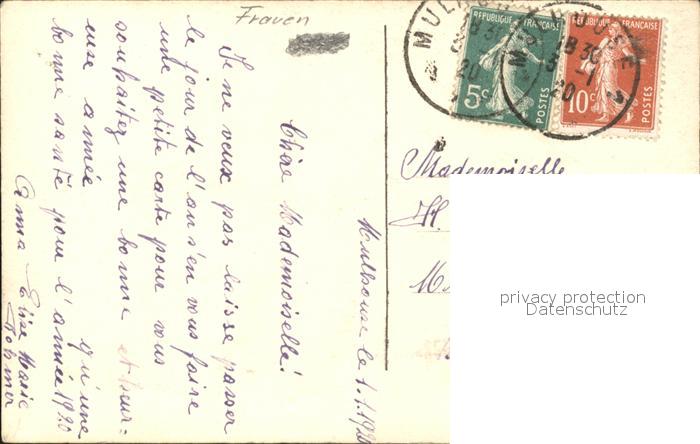 Frauen
Mulhouse le 1.1.1920
Chère Mademoiselle!
Je ne veux pas laisse passer
le jour de l'an s'en vous faire
une petite carte pour vous
souhaitez une bonne et heur=
euse année qu'une
bonne santé pour l'année 1920
Anna Elise Marie
REPUBLIQUE FRANÇAISE
5c
POSTES
REPUBLIQUE FRANÇAISE
10c
POSTES
Mademoiselle
H.
privacy protection
Datenschutz